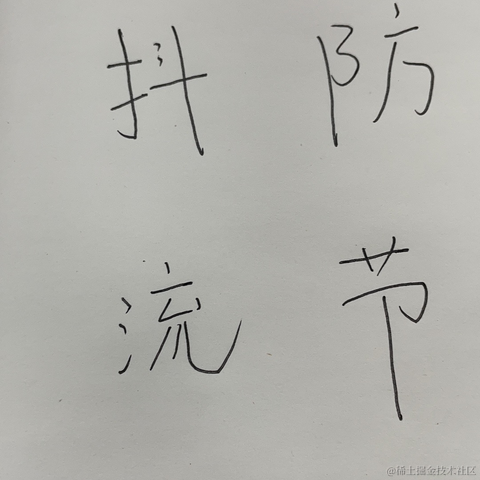 抖 防
流 节
@稀土掘金技术社区